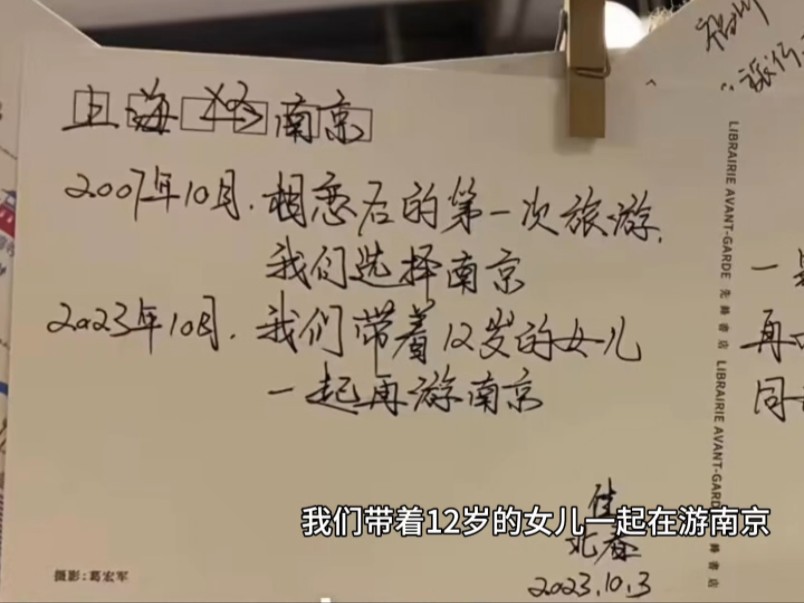 上海 经 南京
2007年10月.相恋后的第一次旅游.
我们选择南京
2023年10月.我们带着12岁的女儿
一起再游南京
佳
北春
2023.10.3
我们带着12岁的女儿一起在游南京
摄影:葛宏军
LIBRAIRIE AVANT-GARDE 先鋒書店 LIBRAIRIE AVANT-GARD
鋒書店
旅行
一
再
同